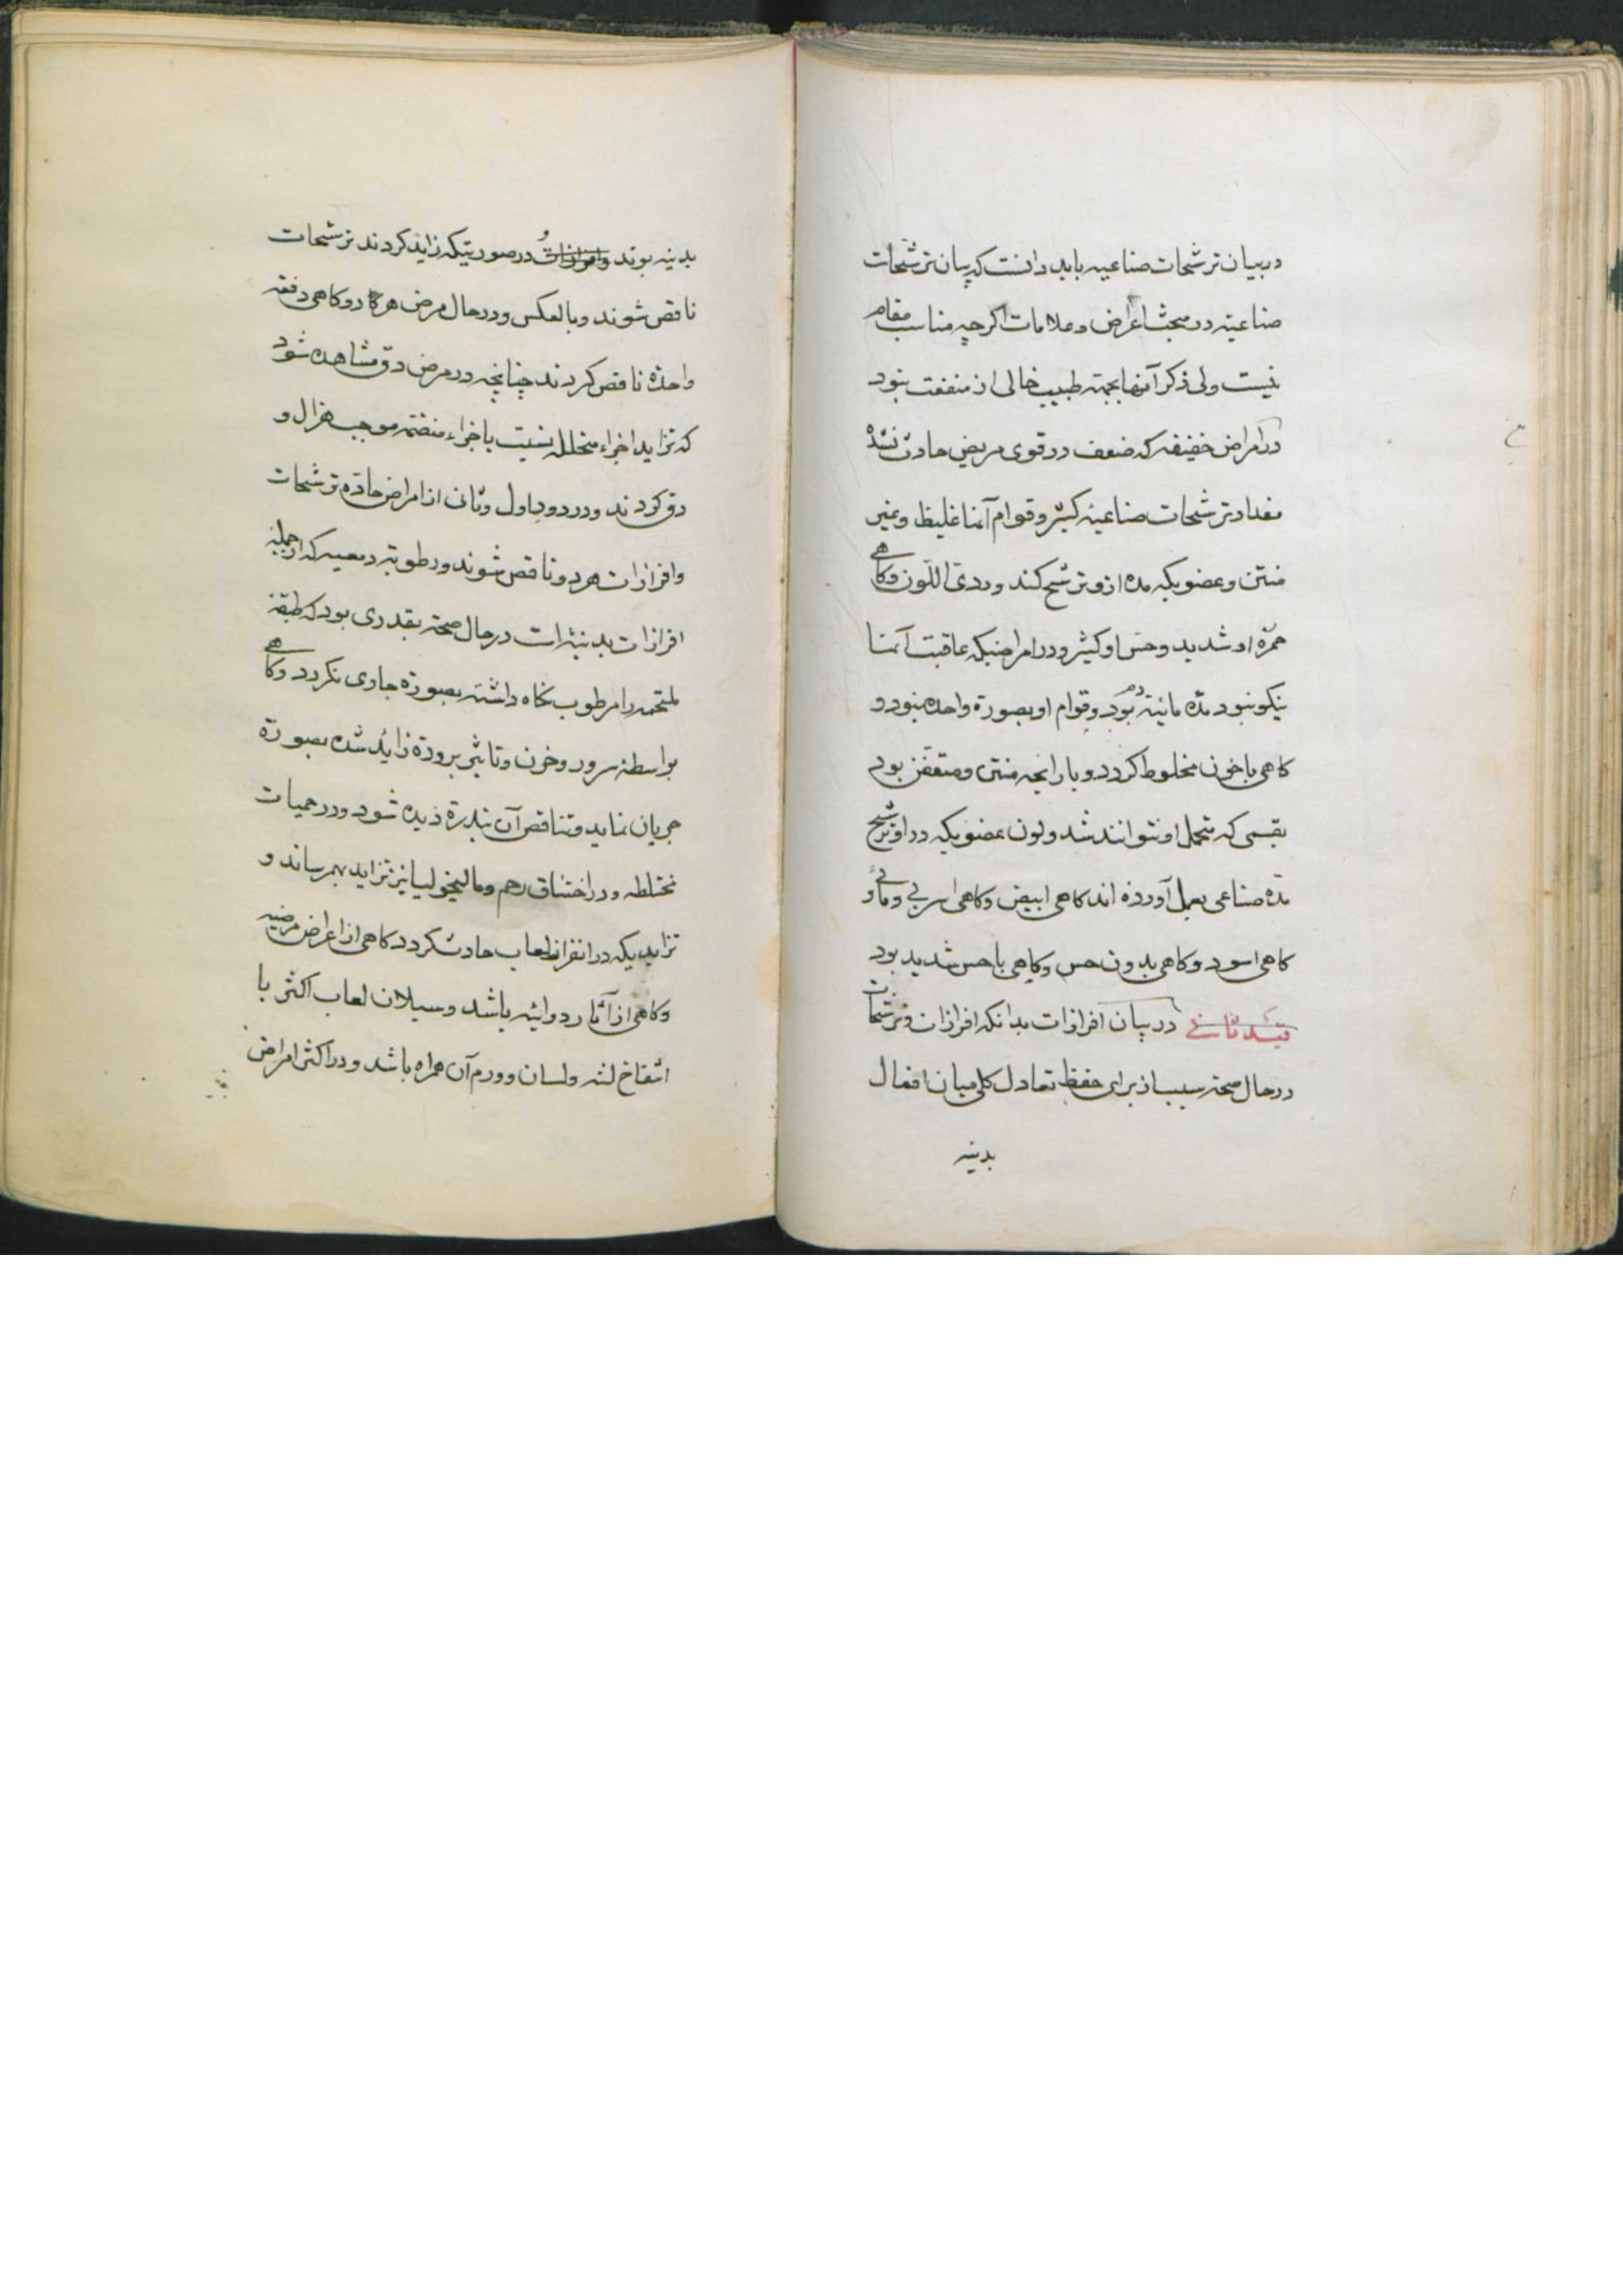 در بیان ترشحات صناعیه باید دانست که بیان ترشحات
صناعیه در مبحث اعراض و علامات اکرچه مناسب مقام
نیست ولی ذکر آنها بجهته طبیب خالی از منفعت نبود
در امراض خفیفه که ضعف در قوی مریض حادث نشده
مقدار ترشحات صناعیه کثیر و قوام آنها غلیظ و غیر
منتن و عضویکه مده ازو ترشح کند وردی اللون و کاهی
حمرة او شدید و حس او کثیر و در امراضیکه عاقبت آنها
نیکو نبود مده مائیه بود و قوام او بصورة واحده نبود و
کاهی با خون مخلوط کردد و با رایحه منتن و متعفن بود
بقسمی که متحمل او نتوانند شد و لون عضویکه در او ترشح
مده صناعی بعمل آورده اند کاهی ابیض و کاهی اسربی و مائی و
کاهی اسود و کاهی بدون حس و کاهی با حس شدید بود
ثانی در بیان افرازات بدانکه افرازات و ترشحات
در حال صحة سیبیاند برای حفظ تعادل کلی میان افعال
بدنیه
بدنیه بوند و افرازات و در صورتیکه زاید کردند ترشحات
ناقص شوند و بالعکس و در حال مرض هرکا دو کاهی دفعة
واحدة ناقص کردند چنانچه در مرض دق مشاهده شود
که تزاید اجزاء متحلله نسبت باجزاء منضمه موجب هزال و
دق کردند و در دور اول و ثانی از امراض حاده ترشحات
و افرازات هر دو ناقص شوند و رطوبة دمعیه که از جمله
افرازات بدنیه است در حال صحة بقدری بود که طبقه
ملتحمه را مرطوب نکاه داشته بصورة جاری نکردد و کاهی
بواسطه سرور و حزن و تاثیر برودة زاید شده بصورة
جریان نماید و تناقص آن بندرة دیده شود و در حمیات
مختلطه و در اختناق رحم و مالیخولیا نیز تزاید بهم رساند و
تزایدیکه در افراز لعاب حادث کردد کاهی از اعراض مرضیه
و کاهی از آثار دوائیه باشد و سیلان لعاب اکثر با
انتفاخ لثه و لسان و ورم آن همراه باشد و در اکثر امراض